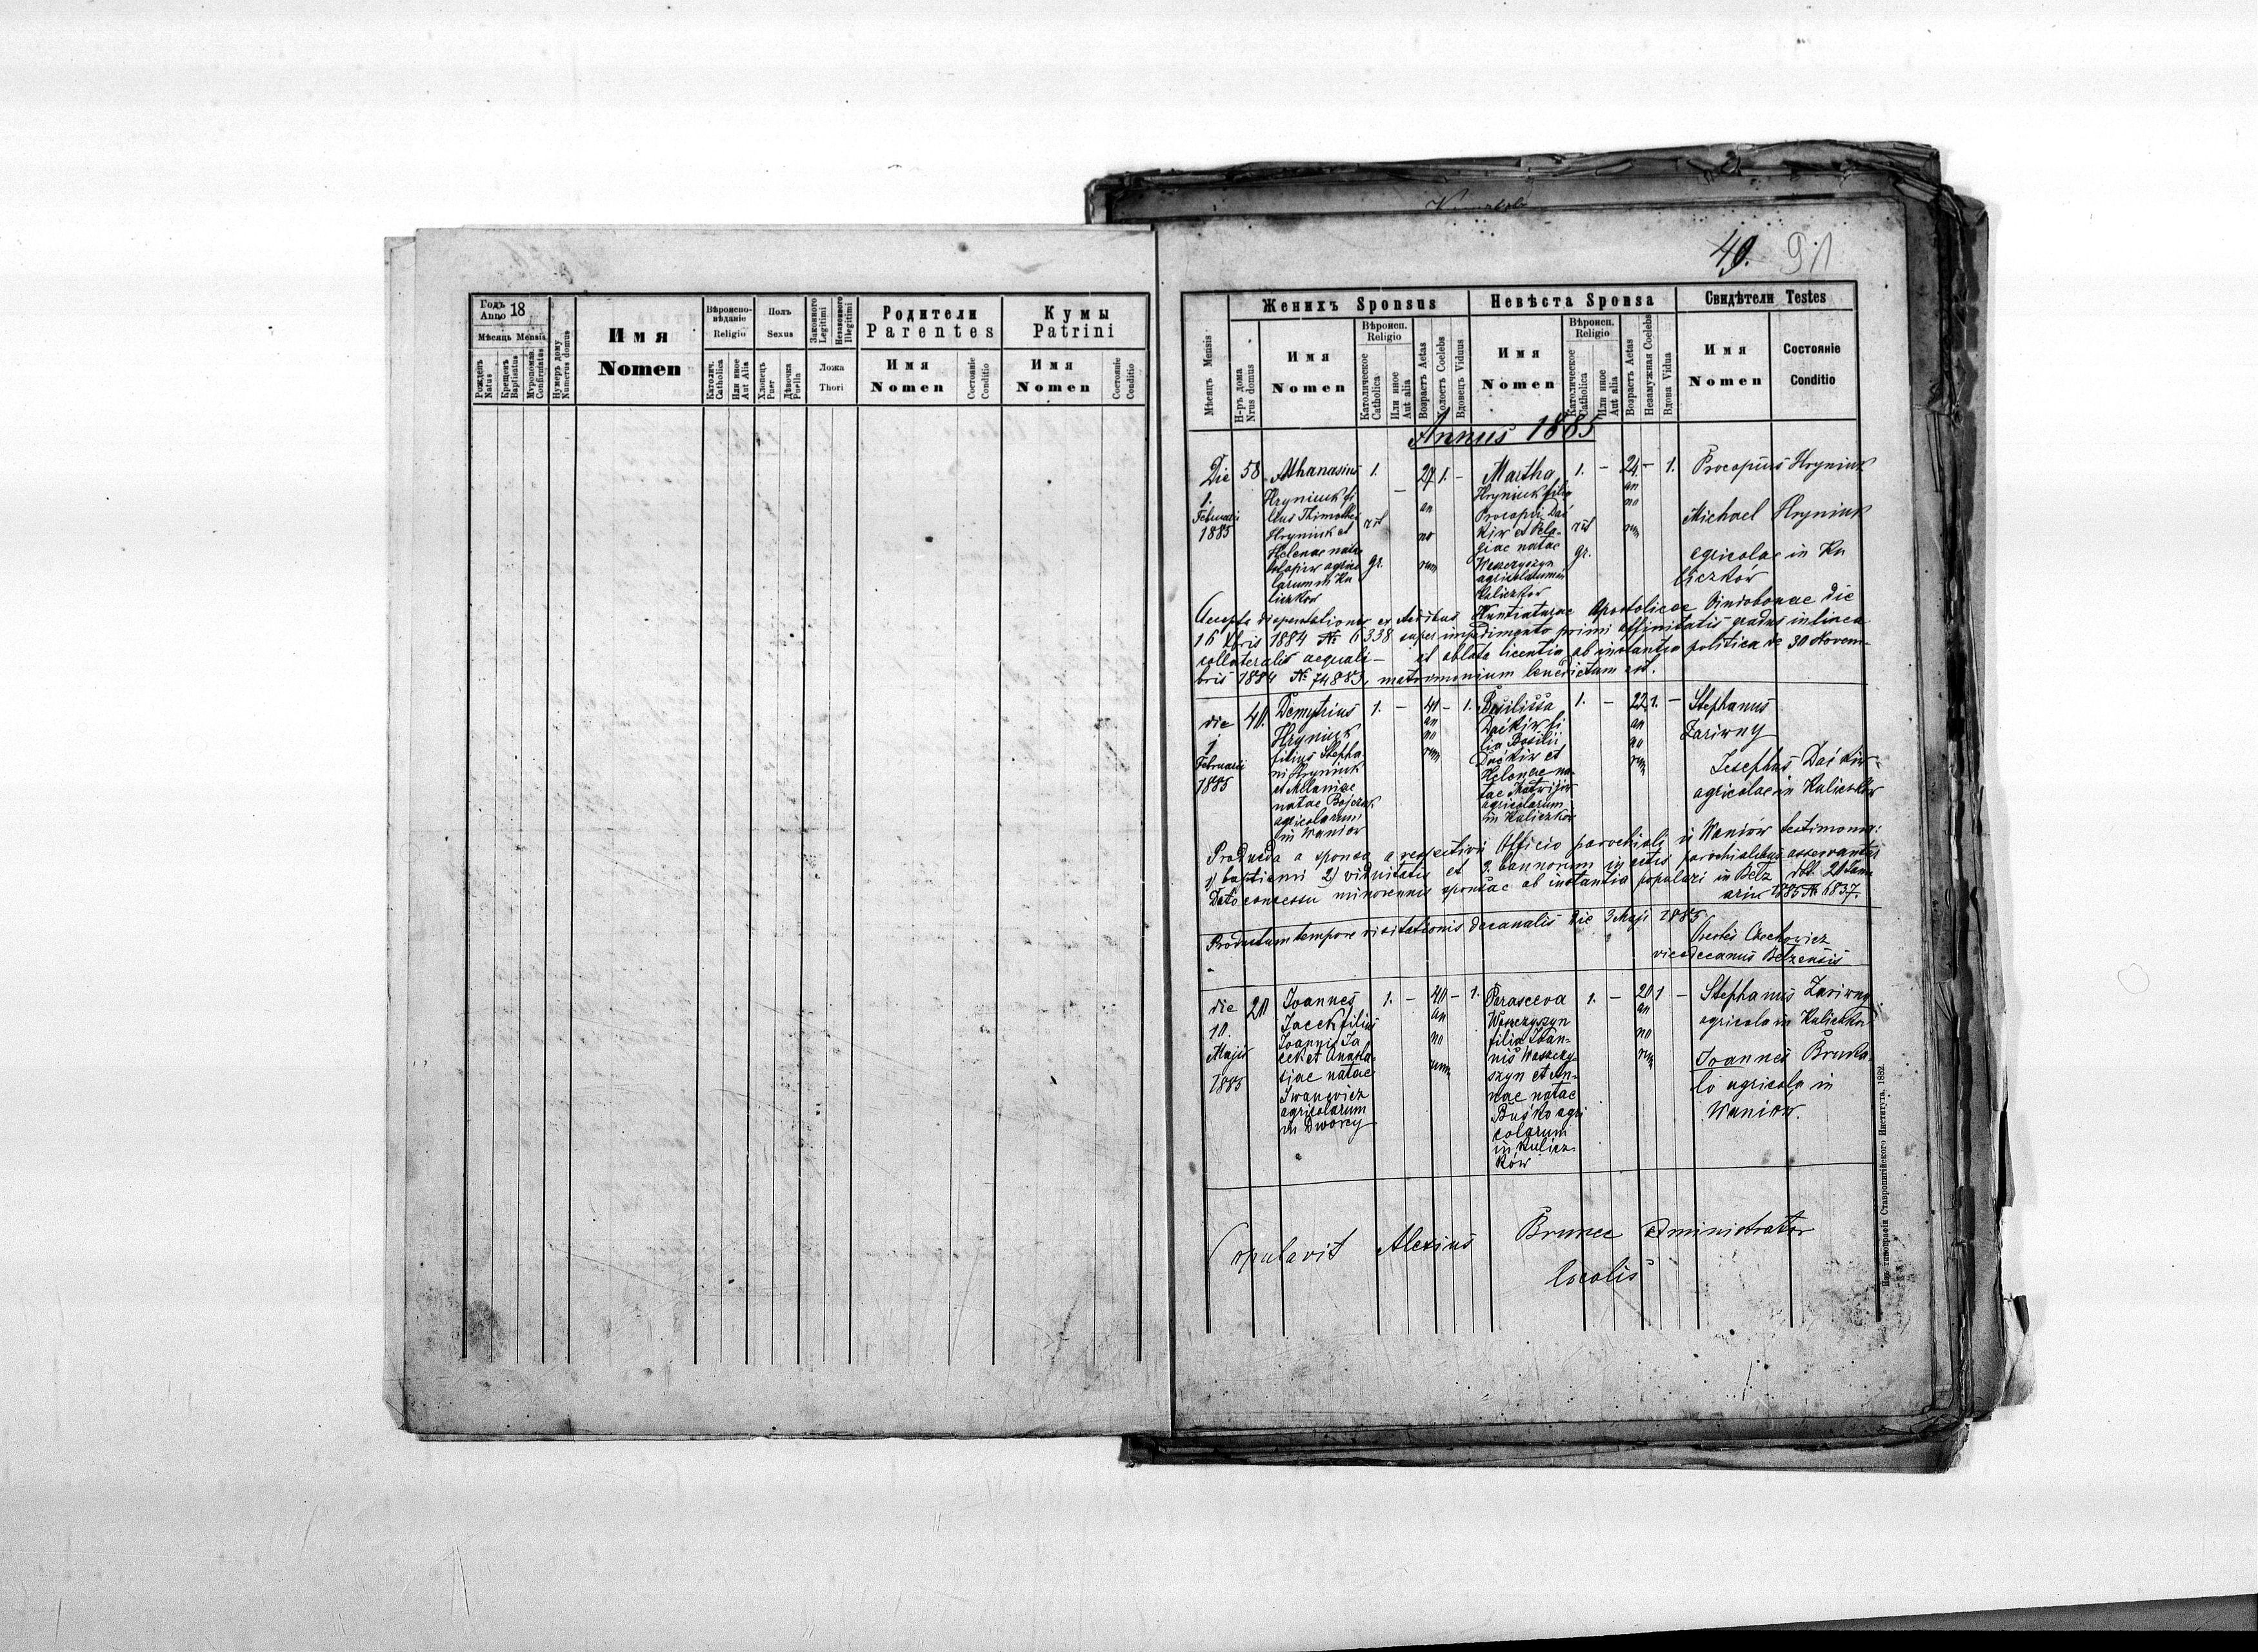 49. 91
Годъ Anno 18
Мѣсяць Mensis
Рожденъ Natus
Крещенъ Baptisatus
Мѵропомаз. Confirmatus
Нумеръ дому Numerus domus
Имя
Nomen
Вѣроисповѣданіе
Religio
Католич. Catholica
Или иное Aut Alia
Полъ
Sexus
Хлопецъ Puer
Дѣвочка Puella
Законного Legitimi
Незаконного Illegitimi
Ложа
Thori
Родители
Parentes
Имя
Nomen
Состояніе Conditio
Кумы
Patrini
Имя
Nomen
Состояніе Conditio
Мѣсяцъ Mensis
Н-ръ дома Nrus domus
Женихъ Sponsus
Имя
Nomen
Вѣроисп.
Religio
Католическое Catholica
Или иное Aut alia
Возрастъ Aetas
Холостъ Coelebs
Вдовецъ Viduus
Невѣста Sponsa
Имя
Nomen
Вѣроисп.
Religio
Католическое Catholica
Или иное Aut alia
Возрастъ Aetas
Незамужная Coelebs
Вдова Vidua
Свидѣтели Testes
Имя
Nomen
Состояніе
Conditio
Annus 1885
Die 1. Februarii 1885
58
Athanasius
Hryniuk fi
lius Thimothei
Hryniuk et
Helenae natae
agrico
larum in Ku
liczków
1. rit gr.
27 annorum
1.
Martha
Hryniuk filia
Procopii Dai
kiw et Pela-
giae natae
Waszczyszyn
agricolarum in
Kuliczków
1. rit gr.
24 annorum
1.
Procopius Hryniuk
Michael Hryniuk
agricolae in Ku
liczków
Accepta dispensationis ex Aedibus Nuntiaturae Apostolicae Vindobonae die
16 Xbris 1884 № 6338 super impedimento primi affinitatis gradus in linea
collateralis aequali – et oblata licentia ab instantia politica de 30 Novem-
bris 1884 № 74883, matrimonium benedictum est.
die 1 Februarii 1885
40.
Demytrius
Hryniuk
filius Stepha
ni Hryniuk
et Melaniae
natae Bojczuk
agricolarum
in Waniow
1. – 41 annorum – 1.
Basilissa
Daćkiw fi
lia Basilii
Daćkiw et
Helenae na-
tae Matwijów
agricolarum
in Kuliczków
1. – 22 annorum 1. –
Stephanus
Zariwny
Josephus Daćkiw
agricolae in Kuliczków
Producta a sponso a respectivi Officio parochiali in Waniów testimonia:
1) baptismi 2) viduitatis et 3. bannorum in actis parochialibus asservantur
Dato consensu minorennis sponsae ab instantia populari in Belz ddt. 21 Janu
arii 1885 № 6837.
Productum tempore visitationis decanalis die 3 Maji 1885
Orestes Czechowicz
vicedecanus Belzensis
die 10. Maji 1885
20
Joannes
Jacek filius
Joannis Ja
cek et Anasta-
siae natae
Iwanowicz
agricolarum
in Dworcy
1. – 40 annorum – 1.
Parasceva
Waszczyszyn
filia Joan-
nis Waszczy-
szyn et An-
nae natae
Buśko agri
colarum
in Kulicz-
ków
1. – 20 annorum 1 –
Stephanus Zariwny
agricola in Kuliczków
Joannes Bruka
lo agricola in
Waniow.
Copulavit Alexius Brunec administrator
localis
Изъ типографіи Ставропигійского Института. 1882.